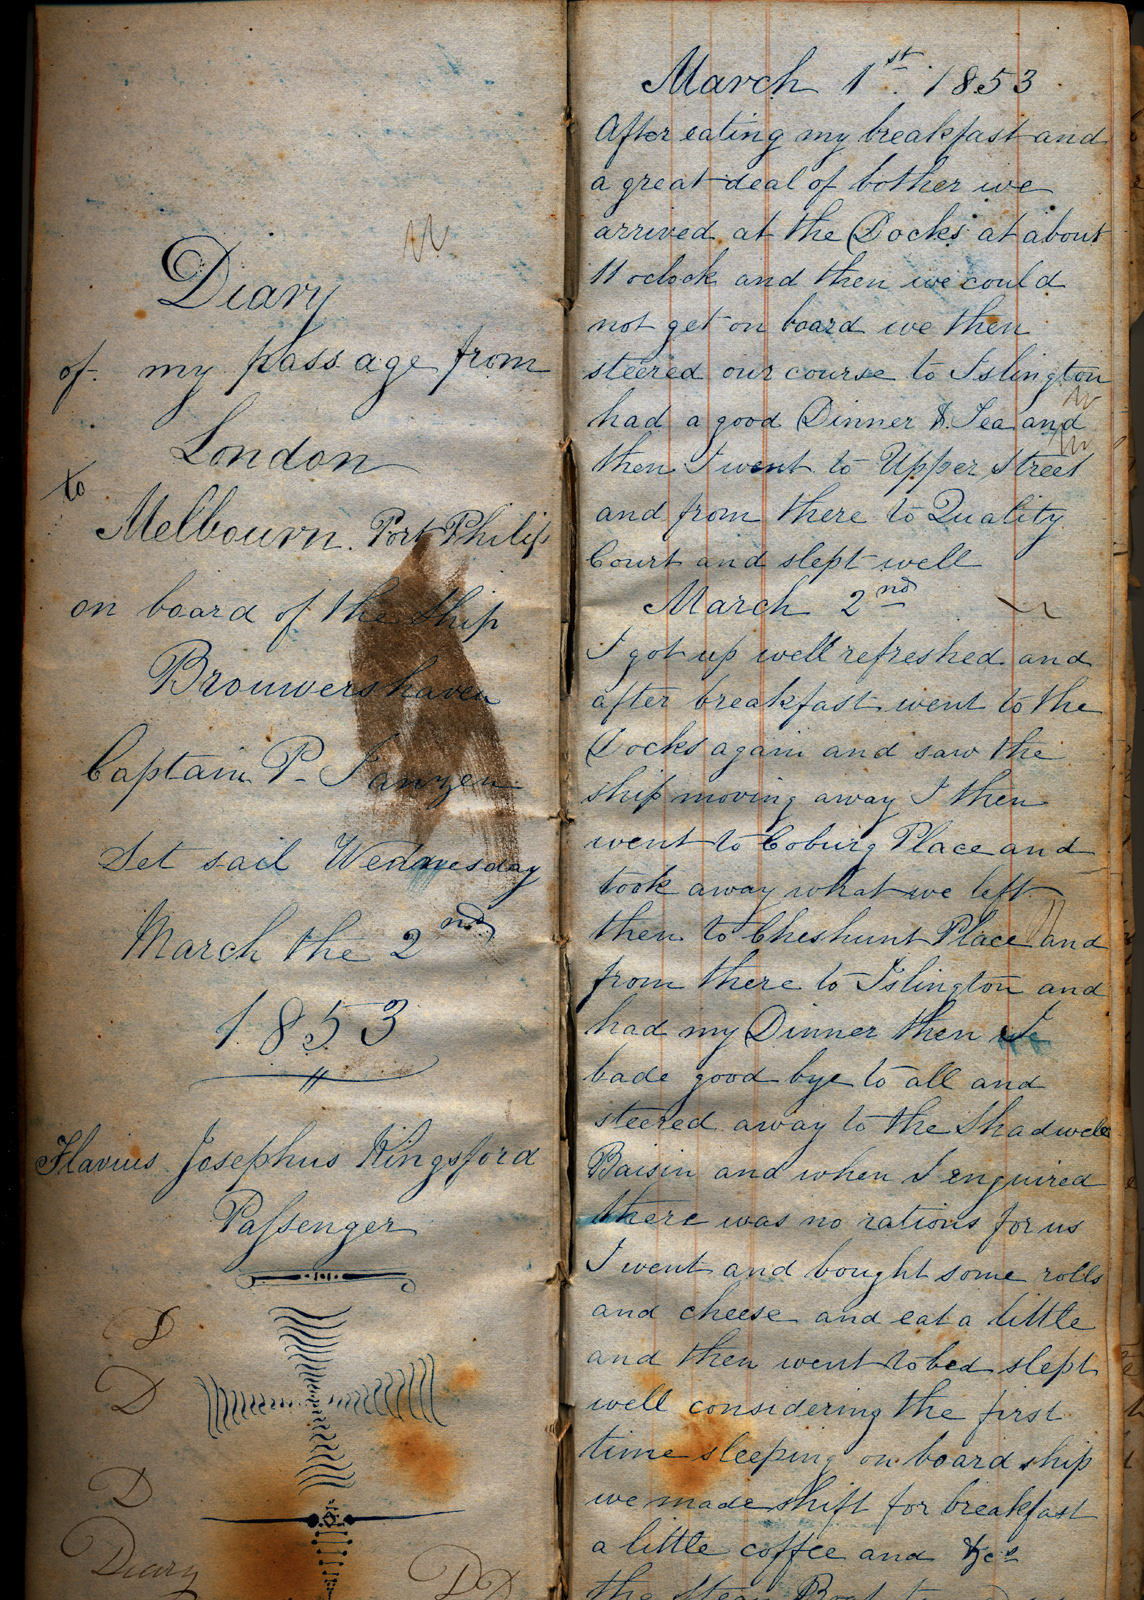 Diary
of my passage from
London
to
Melbourn. Port Philip
on board of the Ship
Brouwershaven
Captain P. Janzen
Set sail Wednesday
March the 2nd
1853
Flavius Josephus Kingsford
Passenger
D
D
D
Diary
D D
March 1st. 1853
After eating my breakfast and
a great deal of bother we
arrived at the Docks at about
11 oclock and then we could
not get on board we then
steered our course to Islington
had a good Dinner & Tea and
then I went to Upper Street
and from there to Quality
Court and slept well
March 2nd
I got up well refreshed and
after breakfast went to the
Docks again and saw the
ship moving away I then
went to Coburg Place and
took away what we left
then to Cheshunt Place and
from there to Islington and
had my Dinner then I
bade good bye to all and
steered away to the Shadwell
Baisin and when I enquired
there was no rations for us
I went and bought some rolls
and cheese and eat a little
and then went to bed slept
well considering the first
time sleeping on board ship
we made shift for breakfast
a little coffee and
the Steam Boat